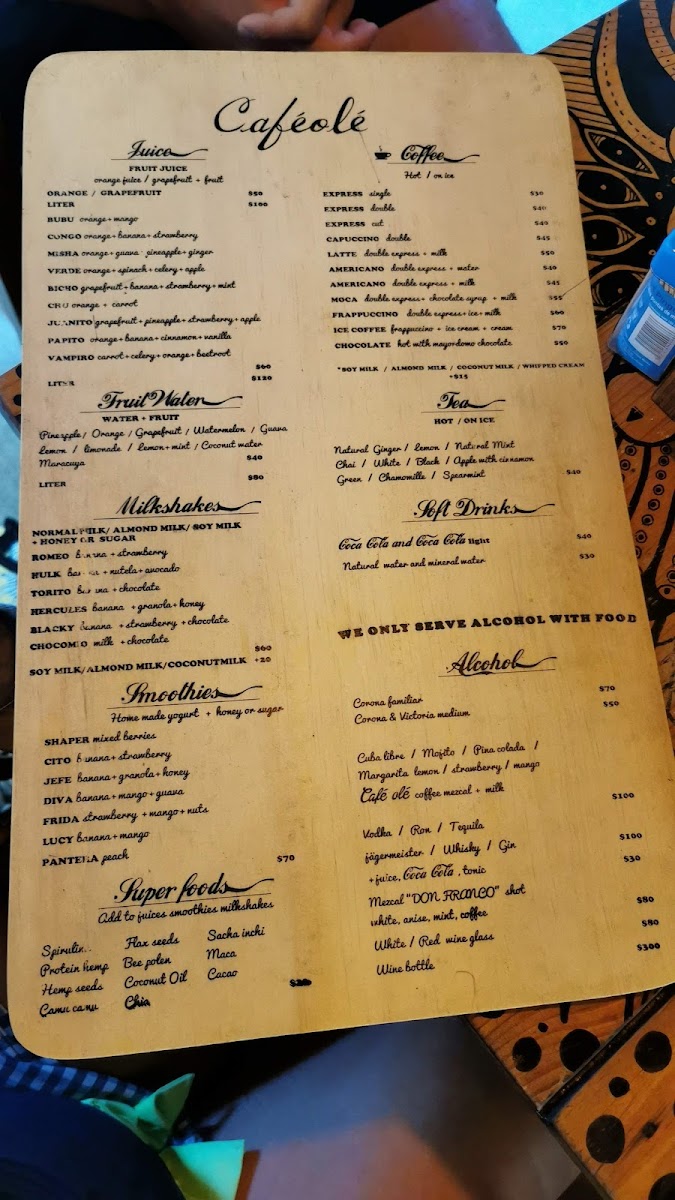 Caféolé
Juice
FRUIT JUICE
orange juice / grapefruit + fruit
ORANGE / GRAPEFRUIT $50
LITER $100
BUBU orange + mango
CONGO orange + banana + strawberry
MISHA orange + guava + pineapple + ginger
VERDE orange + spinach + celery + apple
BICHO grapefruit + banana + stramberry + mint
CHU orange + carrot
JUANITO grapefruit + pineapple + strawberry + apple
PAPITO orange + banana + cinnamon + vanilla
VAMPIRO carrot + celery + orange + beetroot
$60
LITER $120
Fruit Water
WATER + FRUIT
Pineapple / Orange / Grapefruit / Watermelon / Guava
Lemon / limonade / Lemon + mint / Coconut water
Maracuya $40
LITER $80
Milkshakes
NORMAL MILK / ALMOND MILK / SOY MILK
+ HONEY OR SUGAR
ROMEO banana + strawberry
HULK banana + nutela + avocado
TORITO banana + chocolate
HERCULES banana + granola + honey
BLACKY banana + strawberry + chocolate
CHOCOMIO milk + chocolate
$60
SOY MILK/ALMOND MILK/COCONUTMILK +20
Smoothies
Home made yogurt + honey or sugar
SHAPER mixed berries
CITO banana + strawberry
JEFE banana + granola + honey
DIVA banana + mango + guava
FRIDA strawberry + mango + nuts
LUCY banana + mango
PANTERA peach $70
Super foods
Add to juices smoothies milkshakes
Spirulin Flax seeds Sacha inchi
Protein hemp Bee polen Maca
Hemp seeds Coconut Oil Cacao
Camu camu Chia
Coffee
Hot / on ice
EXPRESS single $30
EXPRESS double $40
EXPRESS cut $40
CAPUCCINO double $45
LATTE double express + milk $50
AMERICANO double express + water $40
AMERICANO double express + milk $45
MOCA double express + chocolate syrup + milk $55
FRAPPUCCINO double express + ice + milk $60
ICE COFFEE frappuccino + ice cream + cream $70
CHOCOLATE hot with mayordomo chocolate $50
*SOY MILK / ALMOND MILK / COCONUT MILK / WHIPPED CREAM
+$15
Tea
HOT / ON ICE
Natural Ginger / Lemon / Natural Mint
Chai / White / Black / Apple with cinnamon
Green / Chamomille / Spearmint $40
Soft Drinks
Coca Cola and Coca Cola light $40
Natural water and mineral water $30
WE ONLY SERVE ALCOHOL WITH FOOD
Alcohol
Corona familiar $70
Corona & Victoria medium $50
Cuba libre / Mojito / Pina colada /
Margarita lemon / strawberry / mango
Café olé coffee mezcal + milk $100
Vodka / Ron / Tequila
jägermeister / Whisky / Gin $100
+ juice, Coca Cola, tonic $30
Mezcal "DON FRANCO" shot
white, anise, mint, coffee $80
White / Red wine glass $80
Wine bottle $300